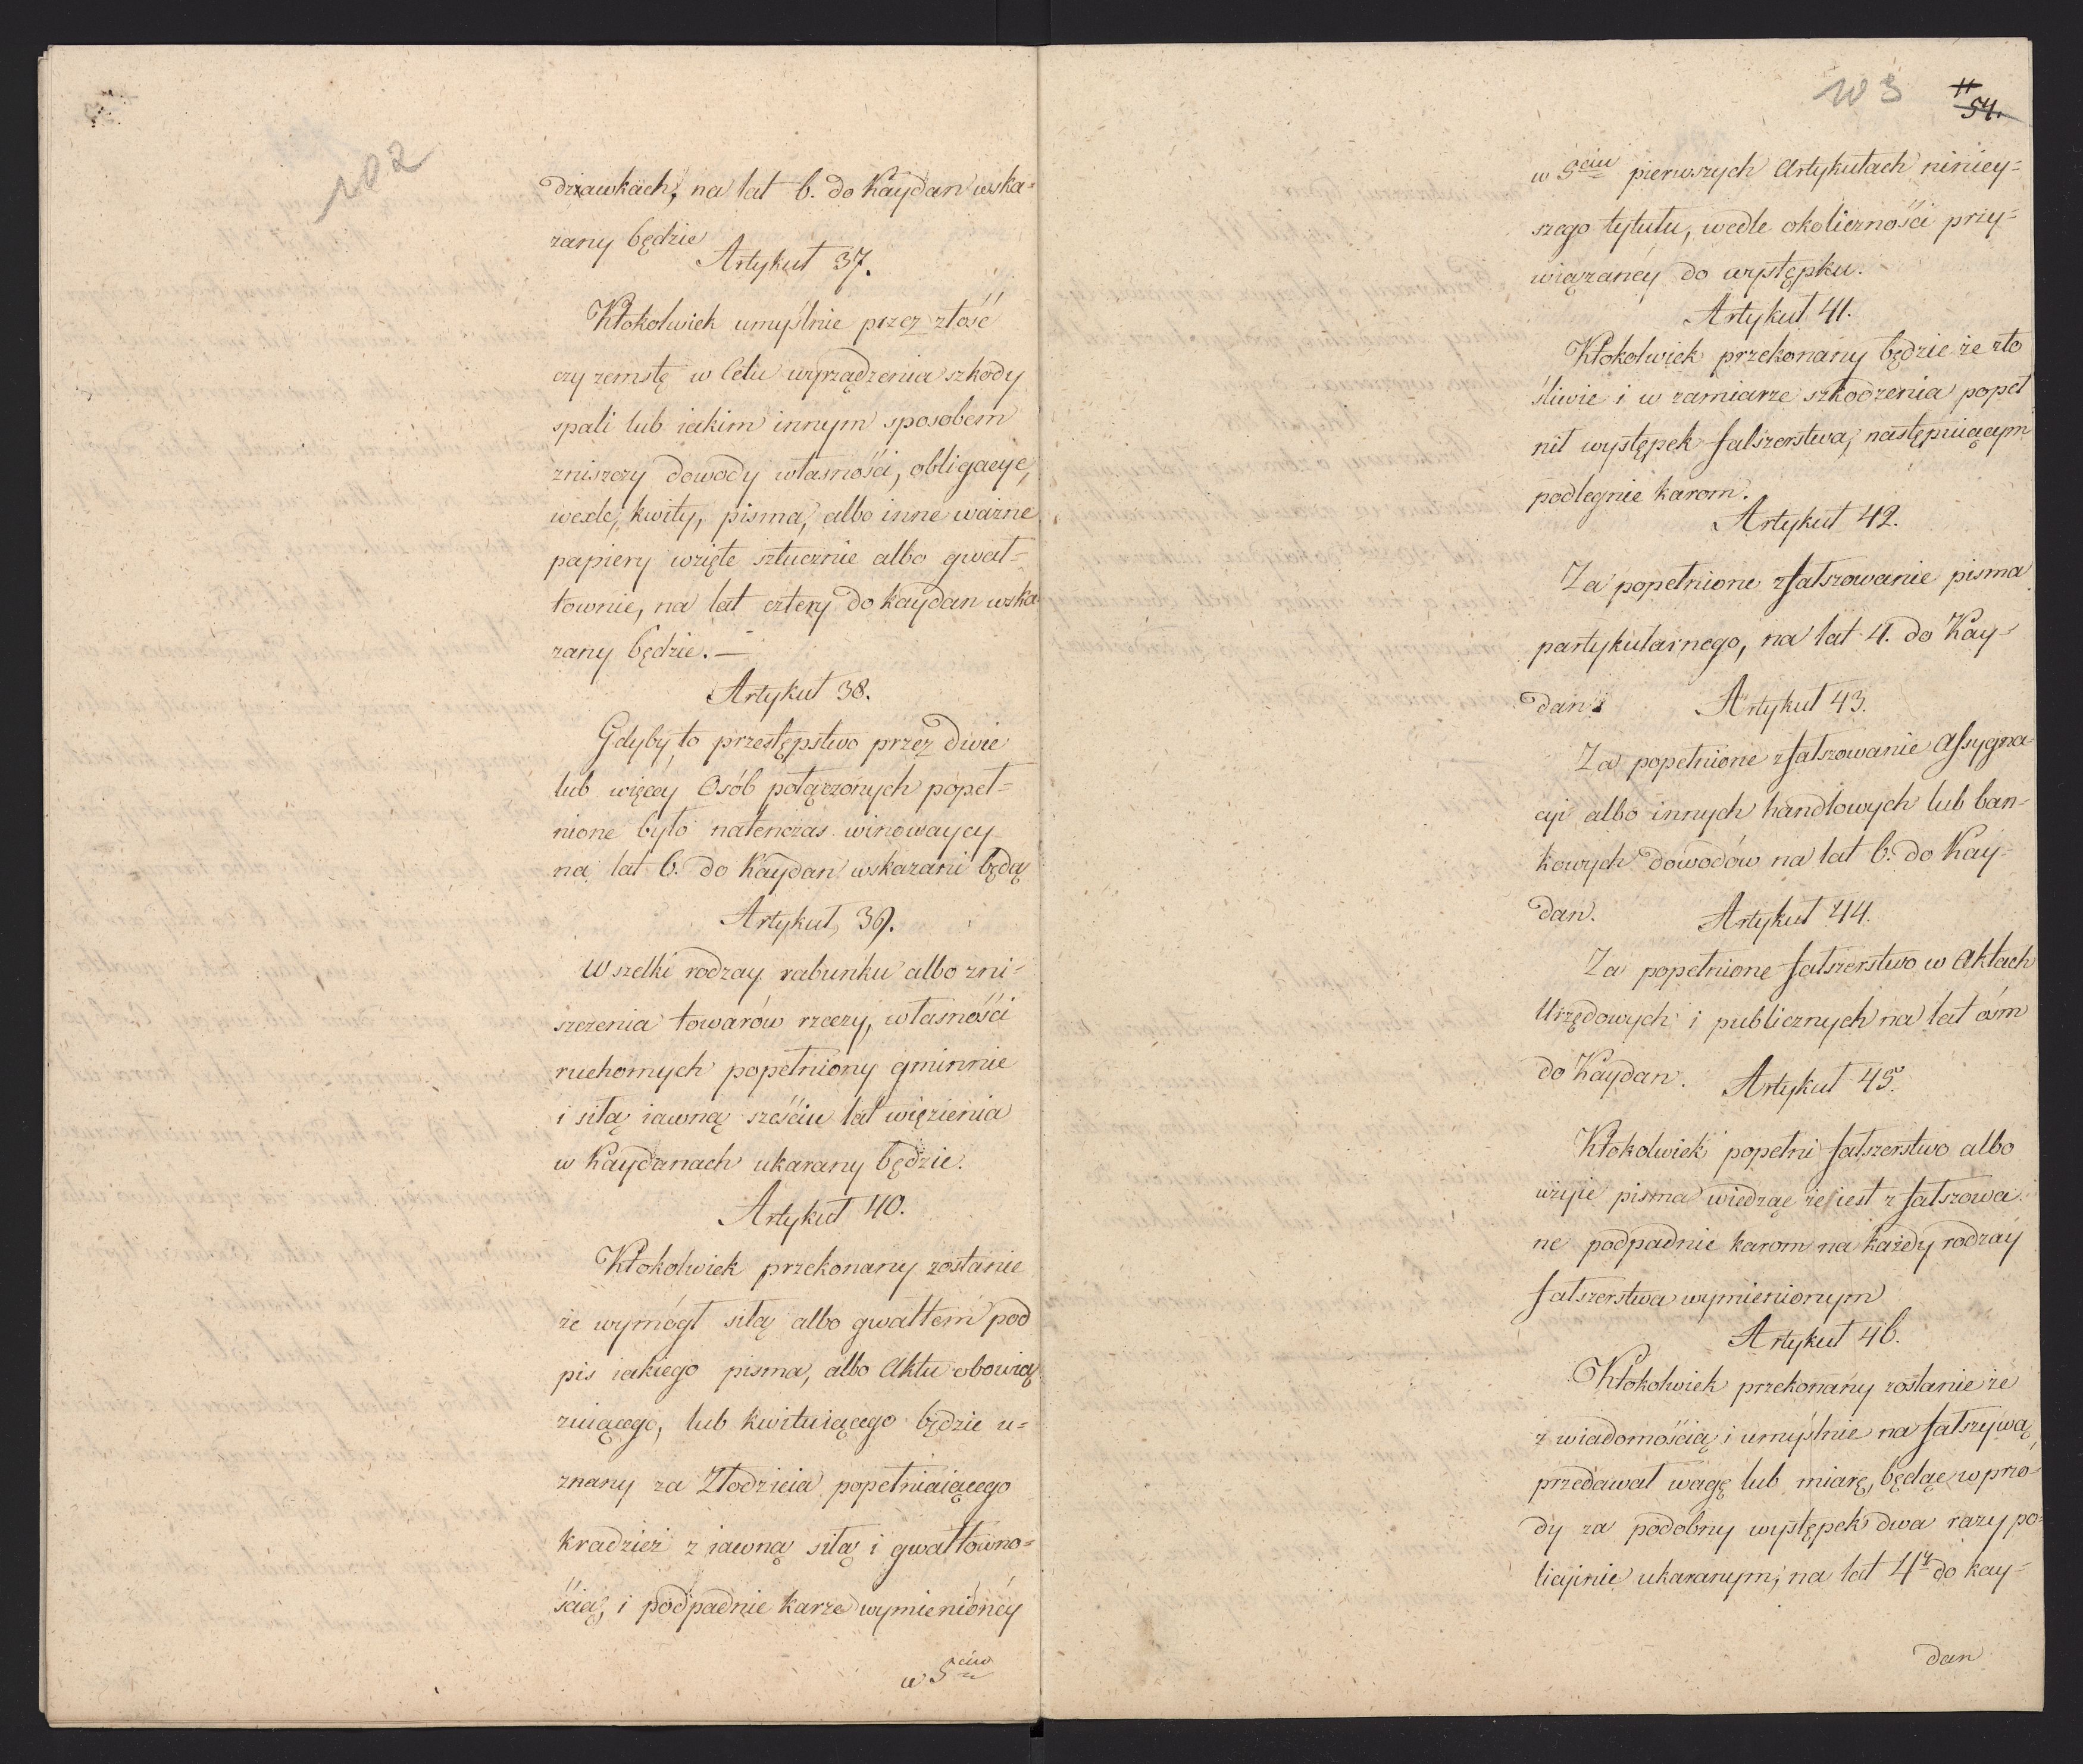 102
dziawkach, na lat 6. do Kaydan wska=
zany będzie
Artykuł 37.
Ktokolwiek umyślnie przez złość
czy zemstę w Celu wyrządzenia szkody
spali lub iakim innym sposobem
zniszczy dowody własności, obligacye,
wexle, kwity, pisma, albo inne ważne
papiery wzięte sztucznie albo gwał=
townie, na lat cztery do kaydan wska
zany będzie. —
Artykuł 38.
Gdyby to przestępstwo przez dwie
lub więcey Osób połączonych popeł=
nione było natenczas winowaycy
na lat 6. do Kaydan wskazani będą
Artykuł 39.
Wszelki rodzay rabunku albo zni=
szczenia towarów rzeczy, własności
ruchomych popełniony gminnie
i siłą iawną sześciu lat więzienia
w Kaydanach ukarany będzie.
Artykuł 40.
Ktokolwiek przekonany zostanie
że wymógł siłą albo gwałtem pod
pis iakiego pisma, albo Aktu obowią
zuiącego, lub kwituiącego będzie u=
znany za Złodzieia popełniaiącego
kradzież z iawną siłą i gwałtowno=
ścią, i podpadnie karze wymienióney
w 5ciu
103
11
54.
w 5ciu pierwszych Artykułach niniey=
szego tytułu, wedle okoliczności przy=
wiązaney do występku.
Artykuł 41.
Ktokolwiek przekonany będzie że zło
śliwie i w zamiarze szkodzenia popeł
nił występek fałszerstwa, następuiącym
podlegnie karom.
Artykuł 42.
Za popełnione zfałszowanie pisma
partykularnego, na lat 4. do Kay=
dan
Artykuł 43.
Za popełnione zfałszowanie Assygna=
cyi albo innych handlowych lub ban=
kowych dowodów na lat 6. do Kay=
dan.
Artykuł 44.
Za popełnione fałszerstwo w Aktach
Urzędowych i publicznych na lat ośm
do Kaydan.
Artykuł 45.
Ktokolwiek popełni fałszerstwo albo
użyie pisma wiedząc że iest zfałszowa
ne podpadnie karom na każdy rodzay
fałszerstwa wymienionym
Artykuł 46.
Ktokolwiek przekonany zostanie że
z wiadomością i umyślnie na fałszywą
przedawał wagę lub miarę, będąc w przó=
dy za podobny występek dwa razy po=
licyinie ukaranym, na lat 4y do kay=
dan